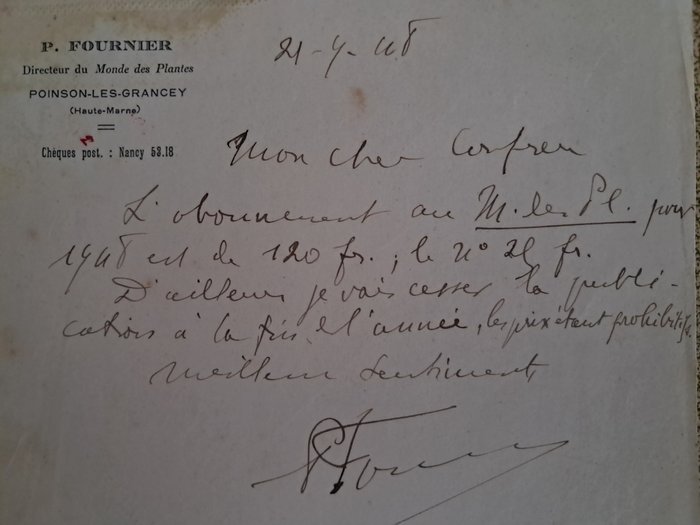 P. FOURNIER
Directeur du Monde des Plantes
POINSON-LES-GRANCEY
(Haute-Marne)
Chèques post. : Nancy 53.18
Mon cher Confrère
L'abonnement au M. des Pl. pour
1948 est de 120 fr. ; le N° 25 fr.
D'ailleurs je vais cesser la publi-
cation à la fin de l'année, les prix étant prohibitifs.
Meilleurs sentiments
P Fournier